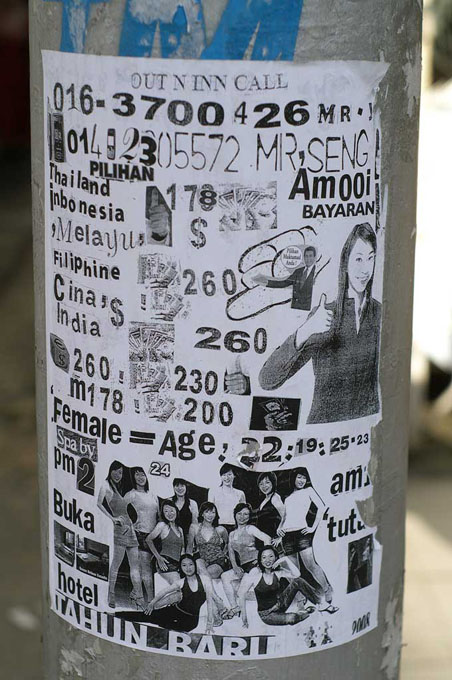 OUT N INN CALL
016-3700426 MR.
MR,SENG
PILIHAN
Amooi
BAYARAN
Thailand
Inbonesia
Melayu
Filiphine
Cina,s
India
178
$
260
260
260
230
m178
200
Female = Age, 22;19;25-23
Spa by
pm 2
24
Buka
hotel
TAHUN BARU